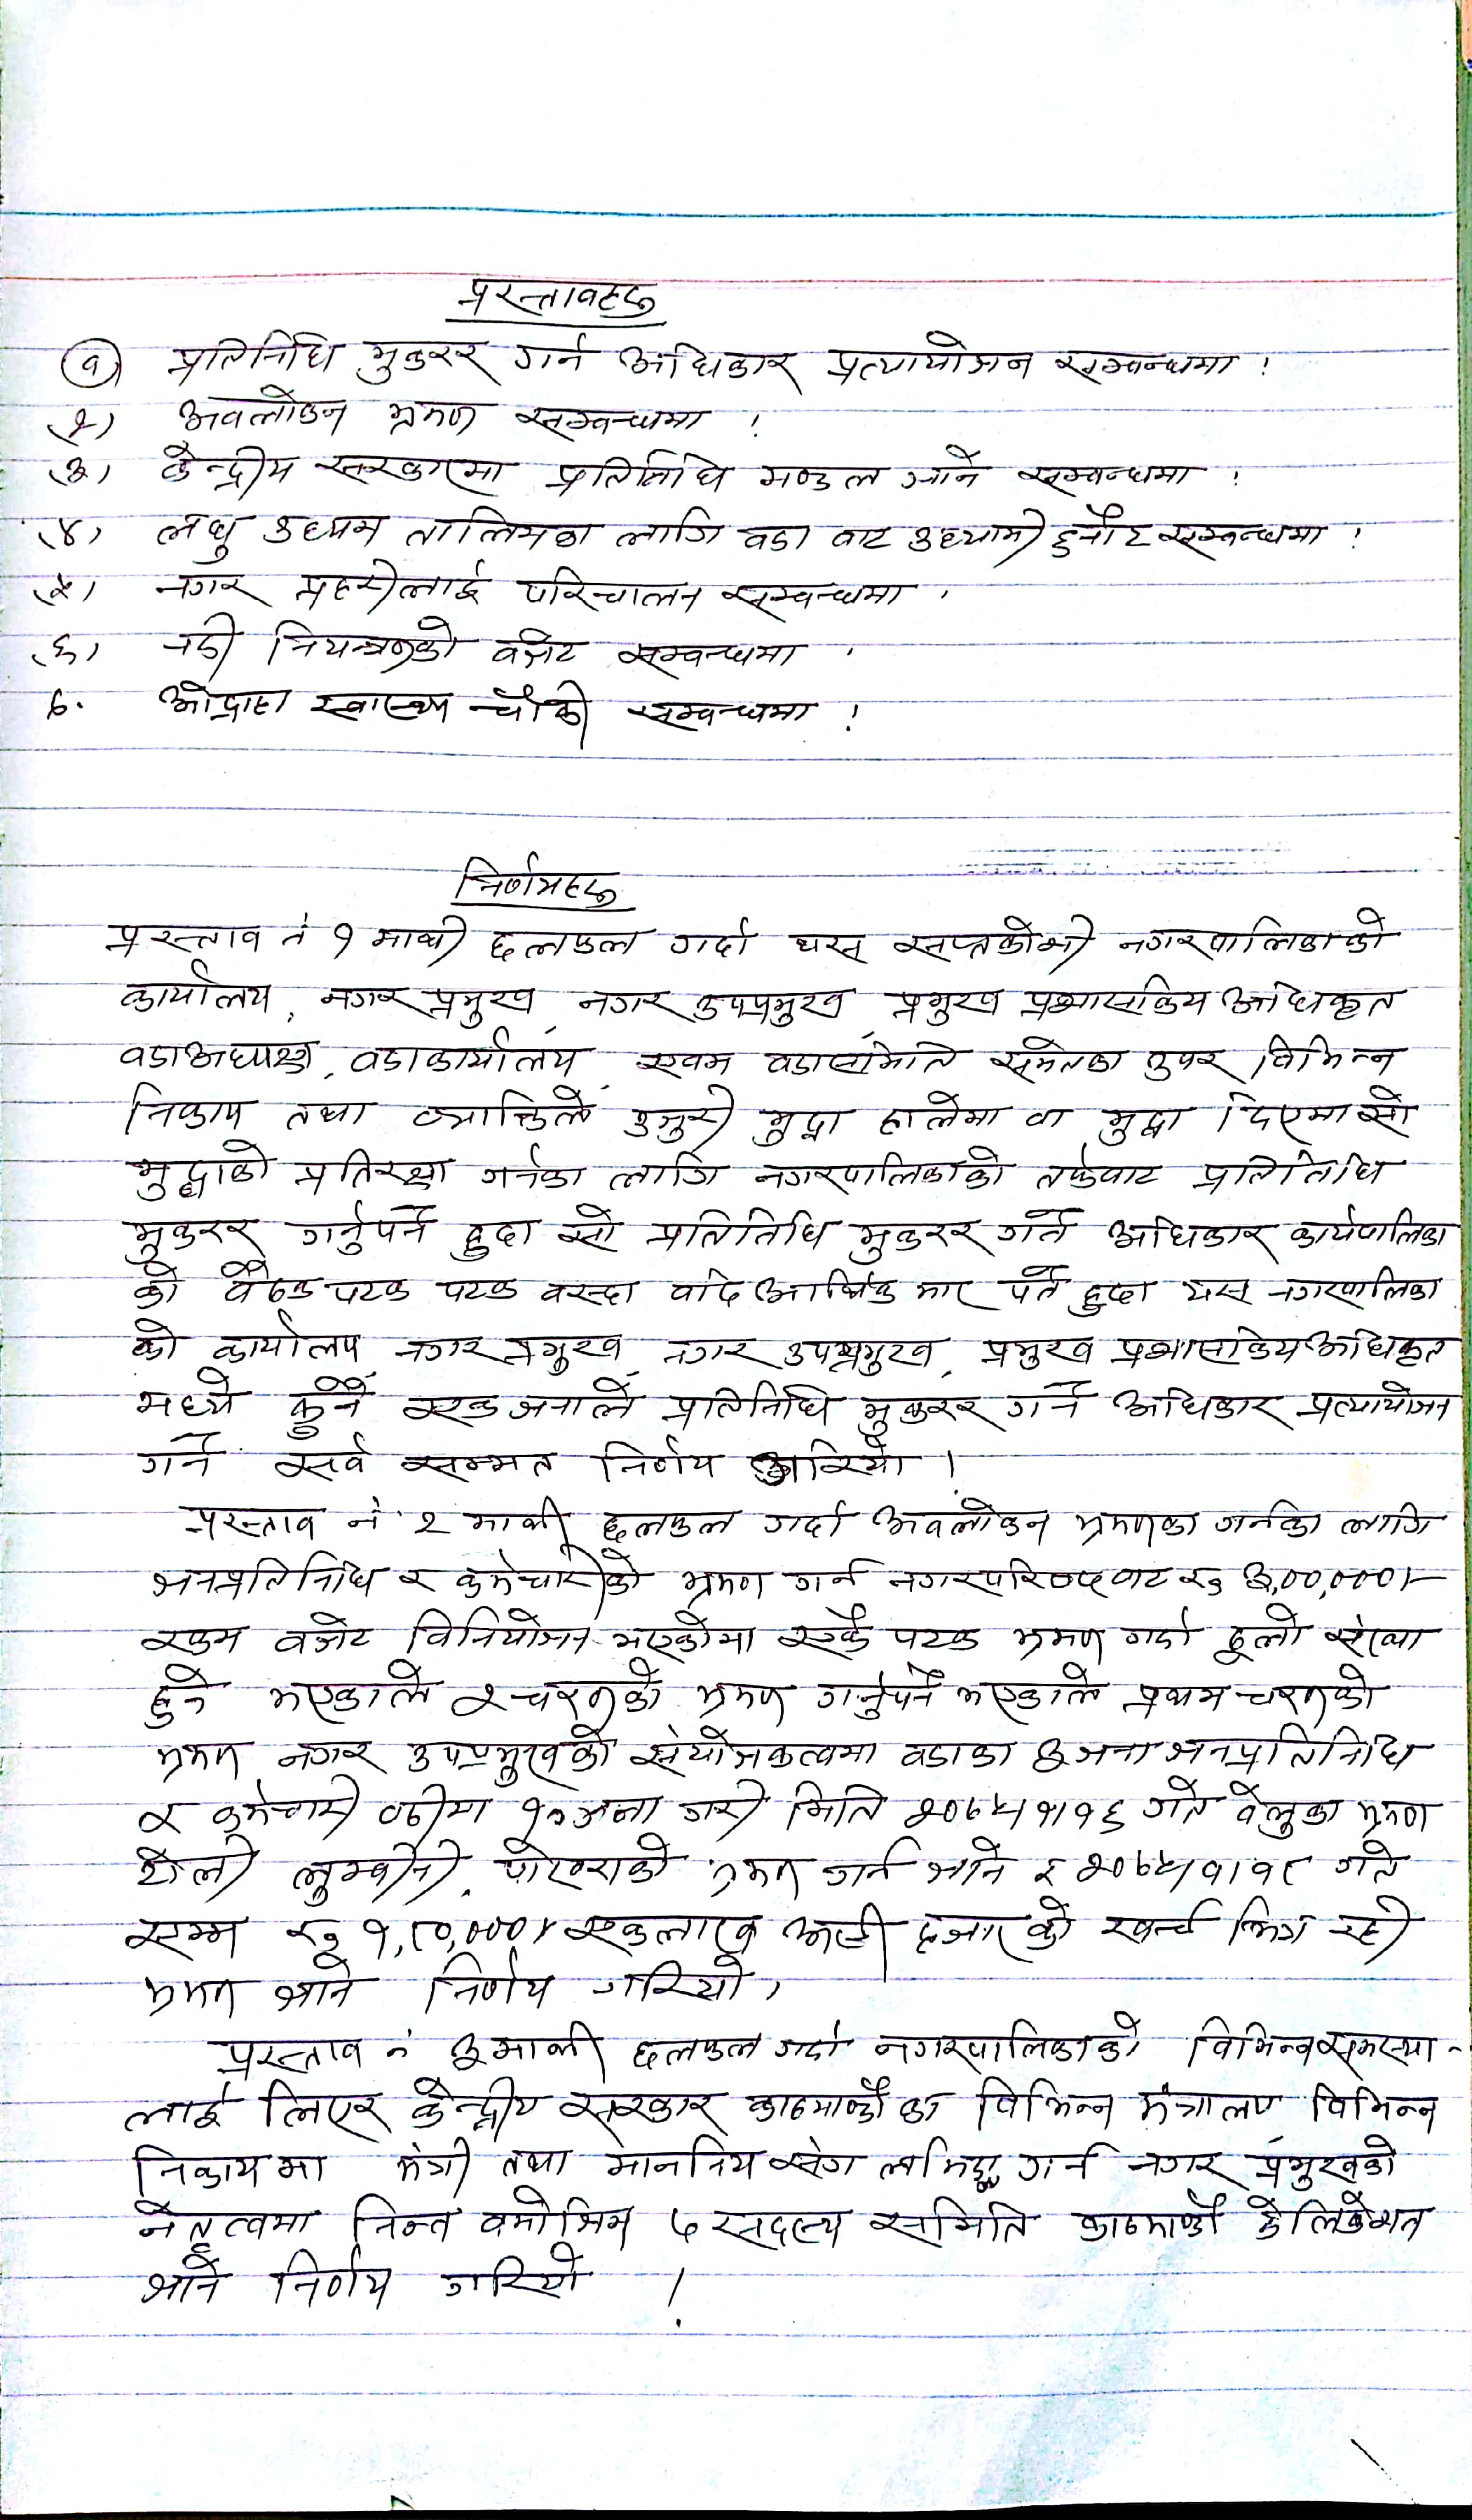 प्रस्तावहरु
(१) प्रतिनिधि मुकरर गर्न अधिकार प्रत्यायोजन सम्बन्धमा ।
(२) अवलोकन भ्रमण सम्बन्धमा ।
(३) केन्द्रीय सरकारमा प्रतिनिधि मण्डल जाने सम्बन्धमा ।
(४) लघु उद्यम तालिमका लागि वडा वाट उद्यामी छनौट सम्बन्धमा ।
(५) नगर प्रहरीलाई परिचालन सम्बन्धमा ।
(६) नदी नियन्त्रणको वजेट सम्बन्धमा ।
७. ओद्राहा स्वास्थ्य चौकी सम्बन्धमा ।
निर्णयहरु
प्रस्ताव नं १ माथी छलफल गर्दा यस सप्तकोशी नगरपालिकाको
कार्यालय, नगर प्रमुख, नगर उपप्रमुख, प्रमुख प्रशासकिय अधिकृत
वडाअध्यक्ष, वडाकार्यालय, एवम वडासमिति समेतका उपर विभिन्न
निकाय तथा व्यक्तिले उजुरी मुद्दा हालेमा वा मुद्दा दिएमा सो
मुद्दाको प्रतिरक्षा गर्नका लागि नगरपालिकाको तर्फवाट प्रतिनिधि
मुकरर गर्नुपर्ने हुदा सो प्रतिनिधि मुकरर गर्ने अधिकार कार्यपालिका
को वैठक पटक पटक वस्दा आर्थिक भार पर्ने हुदा यस नगरपालिका
को कार्यालय, नगर प्रमुख, नगर उपप्रमुख, प्रमुख प्रशासकिय अधिकृत
मध्ये कुनै एक जनाले प्रतिनिधि मुकरर गर्ने अधिकार प्रत्यायोजन
गर्ने सर्व सम्मत निर्णय गरियो ।
प्रस्ताव नं २ माथी छलफल गर्दा अवलोकन भ्रमणका गर्नका लागि
जनप्रतिनिधि र कर्मचारीको भ्रमण गर्न नगरपरिषदवाट रु ३,००,०००।-
रकम वजेट विनियोजन भएकोमा एकै पटक भ्रमण गर्दा ठूलो संख्या
हुने भएकाले २ चरणको भ्रमण गर्नुपर्ने भएकाले प्रथम चरणको
भ्रमण नगर उपप्रमुखको संयोजकत्वमा वडाका ३ जना जनप्रतिनिधि
र कर्मचारी वढीमा १० जना गरी मिति २०७५।१।१६ गते वेलुका भ्रमण
टोली लुम्वीनी, पोखराको भ्रमण गर्न जाने र २०७५।१।१९ गते
सम्म रु १,८०,०००। एकलाख असी हजारको खर्च भित्र रही
भ्रमण जाने निर्णय गरियो ।
प्रस्ताव नं ३ माथी छलफल गर्दा नगरपालिकाको विभिन्न समस्या-
लाई लिएर केन्द्रीय सरकार काठमाण्डौ का विभिन्न मंत्रालय विभिन्न
निकायमा मंत्री तथा माननिय संग गर्न नगर प्रमुखको
नेतृत्वमा निम्न वमोजिम ५ सदस्य समिति काठमाण्डौ डेलिकेशन
जाने निर्णय गरियो ।